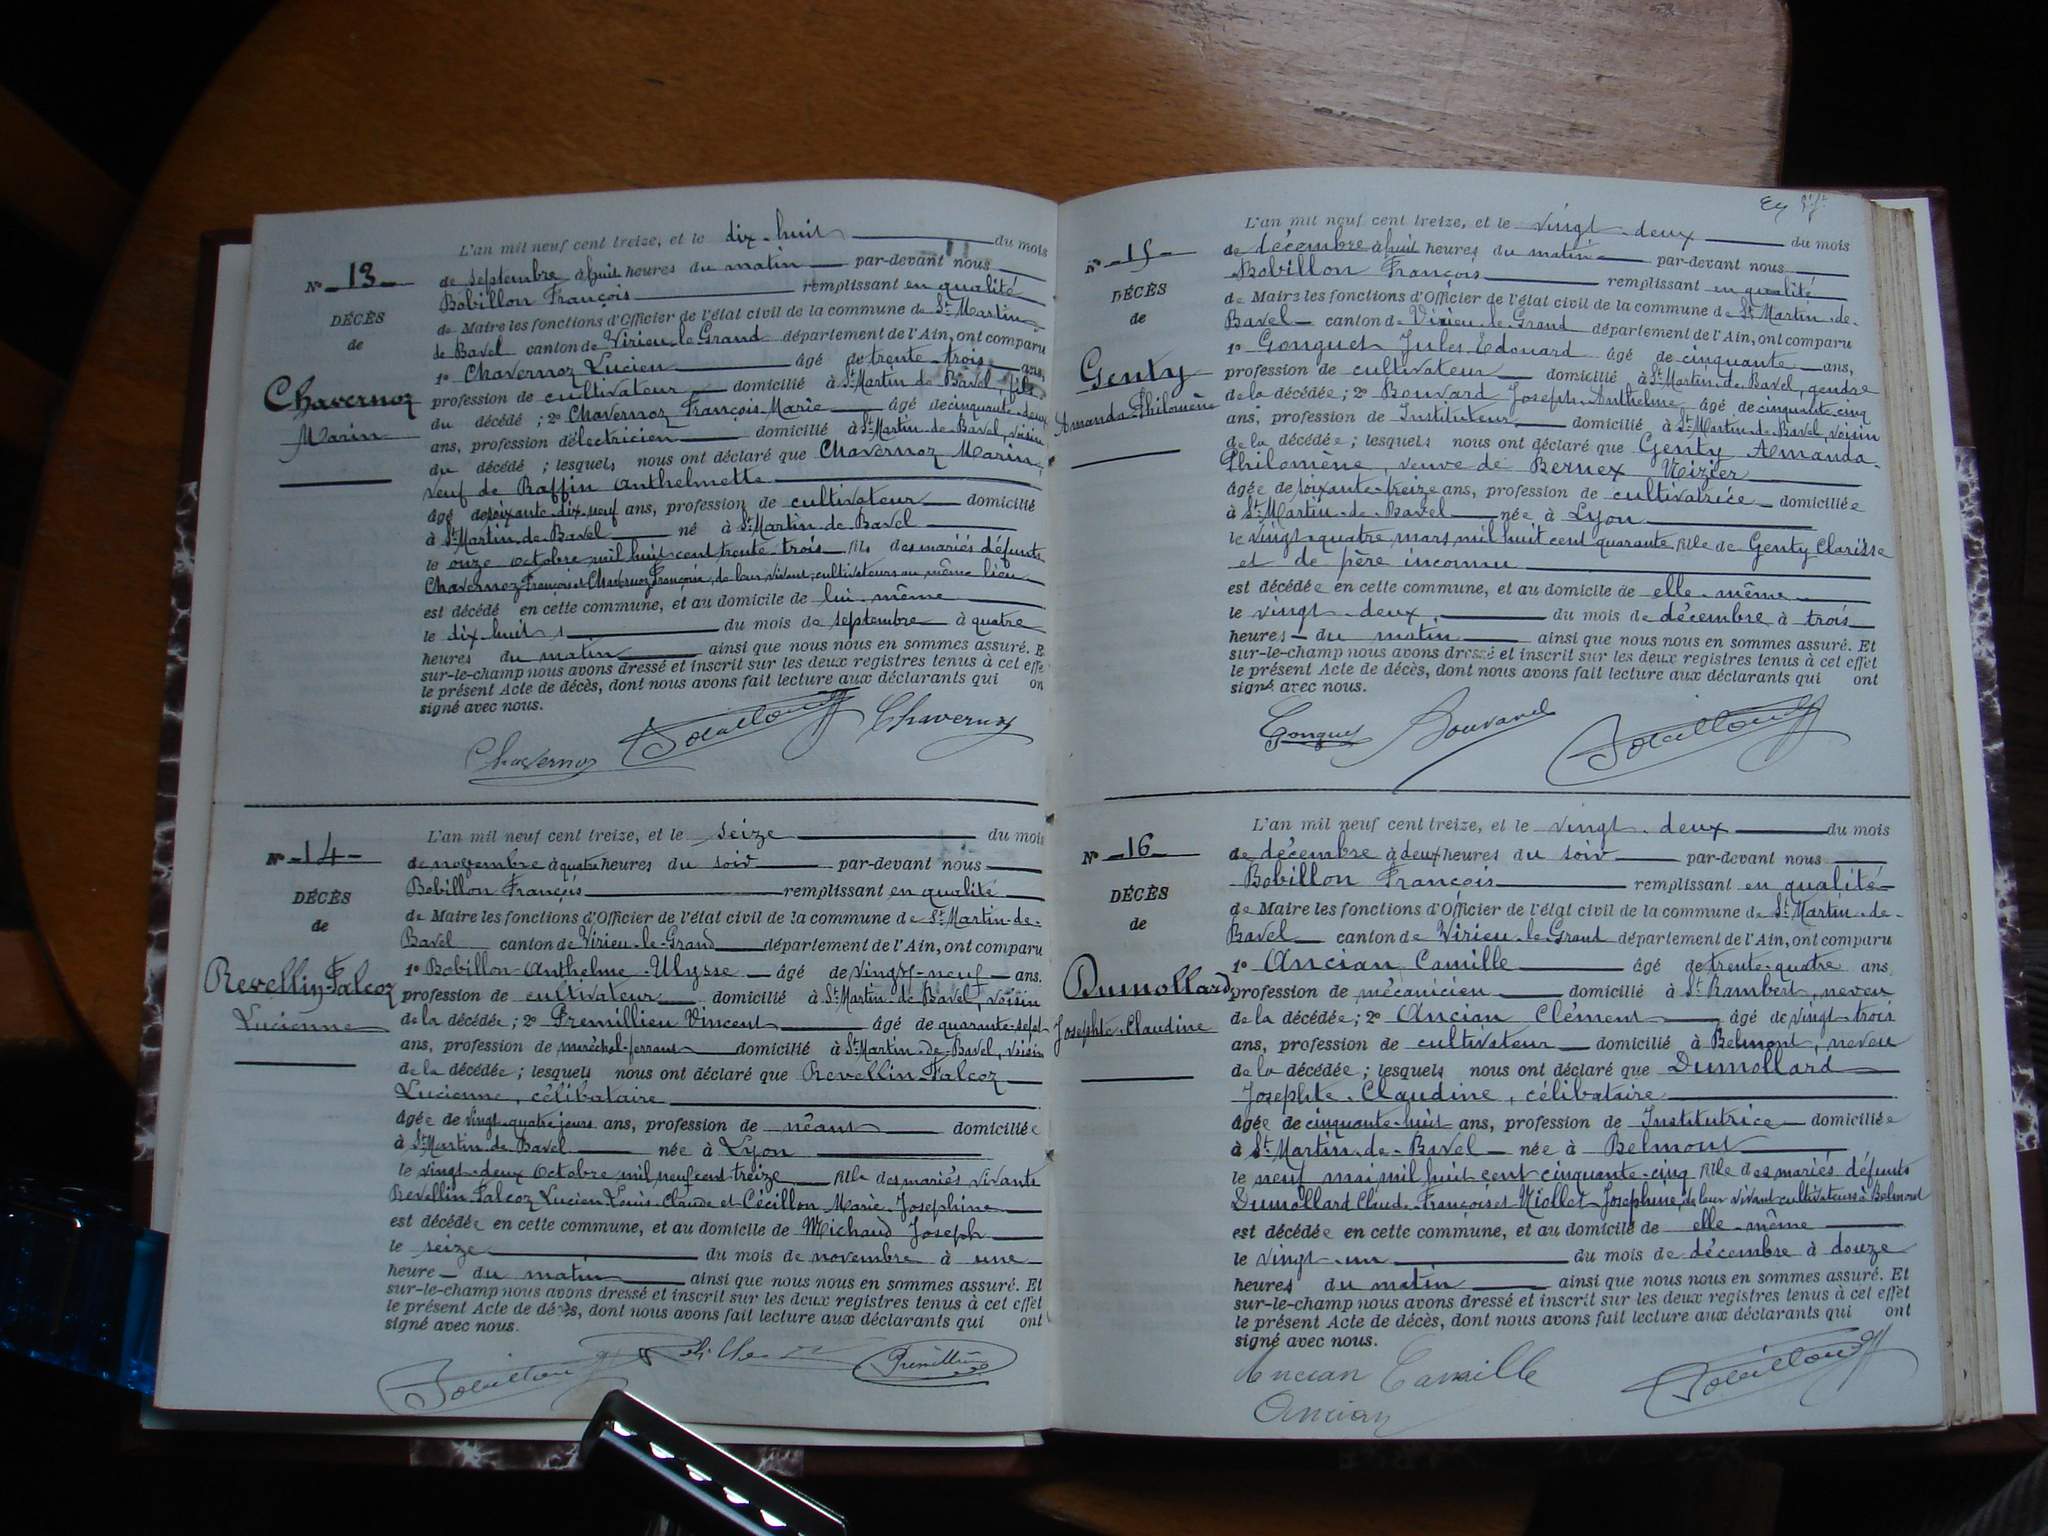 L'an mil neuf cent treize, et le dix-huit du mois
N° 13
de septembre à huit heures du matin par-devant nous
Bobillon François remplissant en qualité
DÉCÈS
de Maire les fonctions d'Officier de l'état civil de la commune de St Martin
de
de Bavel canton de Virieu-le-Grand département de l'Ain, ont comparu
1° Chavernoz Lucien âgé de trente-trois ans,
Chavernoz
profession de cultivateur domicilié à St Martin de Bavel, fils
Marin
du décédé ; 2° Chavernoz François-Marie âgé de cinquante-deux
ans, profession d'électricien domicilié à St Martin-de-Bavel, voisin
du décédé ; lesquels nous ont déclaré que Chavernoz Marin,
veuf de Raffin Anthelmette
âgé de soixante-dix-neuf ans, profession de cultivateur domicilié
à St Martin de Bavel né à St Martin de Bavel
le onze octobre mil huit cent trente-trois fils des mariés défunts
Chavernoz François et Chavernoz Françoise, de leur vivant, cultivateurs au même lieu
est décédé en cette commune, et au domicile de lui-même
le dix-huit du mois de septembre à quatre
heures du matin ainsi que nous nous en sommes assuré. E
sur-le-champ nous avons dressé et inscrit sur les deux registres tenus à cet effe
le présent Acte de décès, dont nous avons fait lecture aux déclarants qui on
signé avec nous.
Chavernoz Bobillon Chavernoz
L'an mil neuf cent treize, et le seize du mois
N° 14
de novembre à quatre heures du soir par-devant nous
Bobillon François remplissant en qualité
DÉCÈS
de Maire les fonctions d'Officier de l'état civil de la commune de St Martin-de-
de
Bavel canton de Virieu-le-Grand département de l'Ain, ont comparu
1° Bobillon-Anthelme-Ulysse âgé de vingt-neuf ans.
Revellin-Falcoz
profession de cultivateur domicilié à St Martin-de-Bavel, voisin
Lucienne
de la décédée ; 2° Premillieu Vincent âgé de quarante-sept
ans, profession de maréchal-ferrant domicilié à St Martin-de-Bavel, voisin
de la décédée ; lesquels nous ont déclaré que Revellin-Falcoz
Lucienne, célibataire
âgée de vingt-quatre jours ans, profession de néant domiciliée
à St Martin de Bavel née à Lyon
le vingt-deux octobre mil neuf cent treize fille des mariés vivants
Revellin-Falcoz Lucien-Louis-Claude et Cécillon Marie-Josephine
est décédée en cette commune, et au domicile de Michaud Joseph
le seize du mois de novembre à une
heure du matin ainsi que nous nous en sommes assuré. Et
sur-le-champ nous avons dressé et inscrit sur les deux registres tenus à cet effet
le présent Acte de décès, dont nous avons fait lecture aux déclarants qui ont
signé avec nous.
Bobillon Premillieu
L'an mil neuf cent treize, et le vingt-deux du mois
N° 15
de décembre à huit heures du matin par-devant nous
Bobillon François remplissant en qualité
DÉCÈS
de Maire les fonctions d'Officier de l'état civil de la commune de St Martin-de-
de
Bavel canton de Virieu-le-Grand département de l'Ain, ont comparu
1° Gonguet Jules-Edouard âgé de cinquante ans,
Genty
profession de cultivateur domicilié à St Martin-de-Bavel, gendre
Amanda-Philomène
de la décédée ; 2° Bouvard Joseph-Anthelme âgé de cinquante-cinq
ans, profession de Instituteur domicilié à St Martin-de-Bavel, voisin
de la décédée ; lesquels nous ont déclaré que Genty Amanda-
Philomène, veuve de Bernex Nizier
âgée de soixante-treize ans, profession de cultivatrice domiciliée
à St Martin-de-Bavel née à Lyon
le vingt-quatre mars mil huit cent quarante fille de Genty Clarisse
et de père inconnu
est décédée en cette commune, et au domicile de elle-même
le vingt-deux du mois de décembre à trois
heures du matin ainsi que nous nous en sommes assuré. Et
sur-le-champ nous avons dressé et inscrit sur les deux registres tenus à cet effet
le présent Acte de décès, dont nous avons fait lecture aux déclarants qui ont
signé avec nous.
Gonguet Bouvard Bobillon
L'an mil neuf cent treize, et le vingt-deux du mois
N° 16
de décembre à deux heures du soir par-devant nous
Bobillon François remplissant en qualité
DÉCÈS
de Maire les fonctions d'Officier de l'état civil de la commune de St Martin-de-
de
Bavel canton de Virieu-le-Grand département de l'Ain, ont comparu
1° Ancian Camille âgé de trente-quatre ans,
Dumollard
profession de mécanicien domicilié à St Rambert, neveu
Josephte-Claudine
de la décédée ; 2° Ancian Clément âgé de vingt-trois
ans, profession de cultivateur domicilié à Belmont, neveu
de la décédée ; lesquels nous ont déclaré que Dumollard
Josephte-Claudine, célibataire
âgée de cinquante-huit ans, profession de Institutrice domiciliée
à St Martin-de-Bavel née à Belmont
le neuf mai mil huit cent cinquante-cinq fille des mariés défunts
Dumollard Claude-François et Miollet Josephine, de leur vivant cultivateurs à Belmont
est décédée en cette commune, et au domicile de elle-même
le vingt-un du mois de décembre à douze
heures du matin ainsi que nous nous en sommes assuré. Et
sur-le-champ nous avons dressé et inscrit sur les deux registres tenus à cet effet
le présent Acte de décès, dont nous avons fait lecture aux déclarants qui ont
signé avec nous.
Ancian Camille Bobillon
Ancian